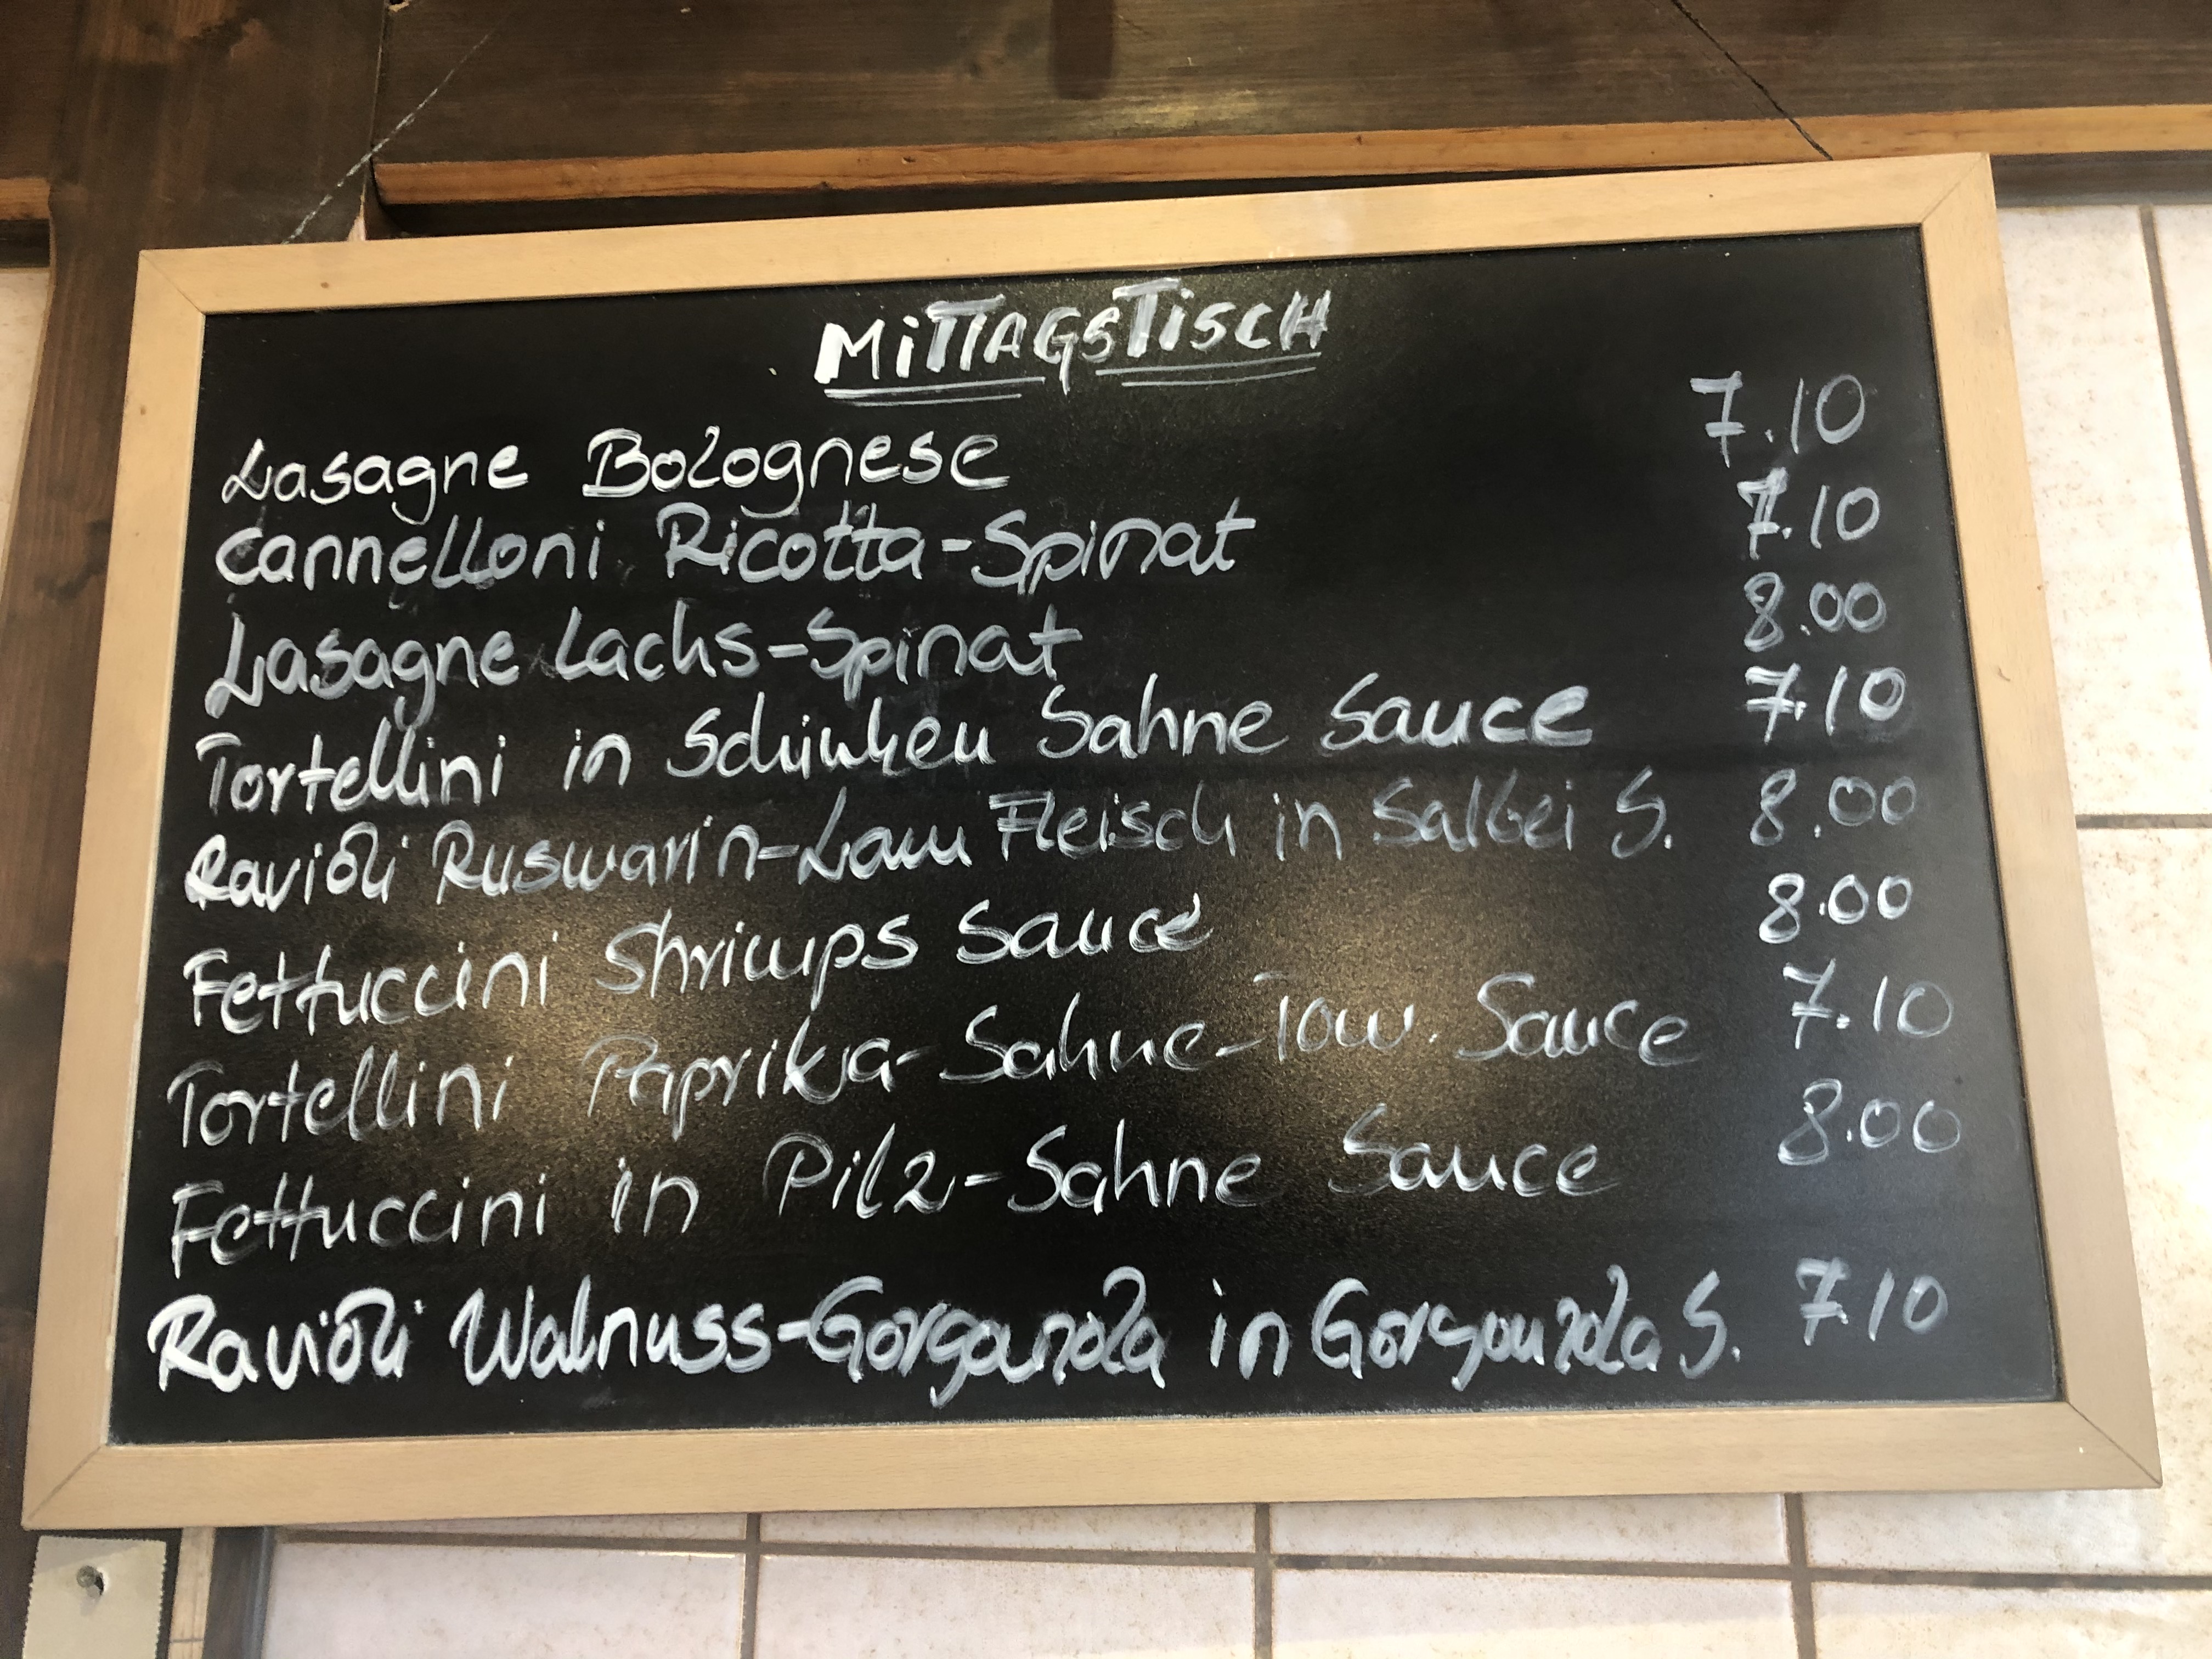 MiTTAGSTiSCH
Lasagne Bolognese 7.10
Cannelloni Ricotta-Spinat 7.10
Lasagne Lachs-Spinat 8.00
Tortellini in Schinken Sahne Sauce 7.10
Ravioli Ruswarin-Lam Fleisch in Salbei S. 8.00
Fettuccini Shrimps Sauce 8.00
Tortellini Paprika-Sahne-Tom. Sauce 7.10
Fettuccini in Pilz-Sahne Sauce 8.00
Ravioli Walnuss-Gorganzola in Gorgonzola S. 7.10